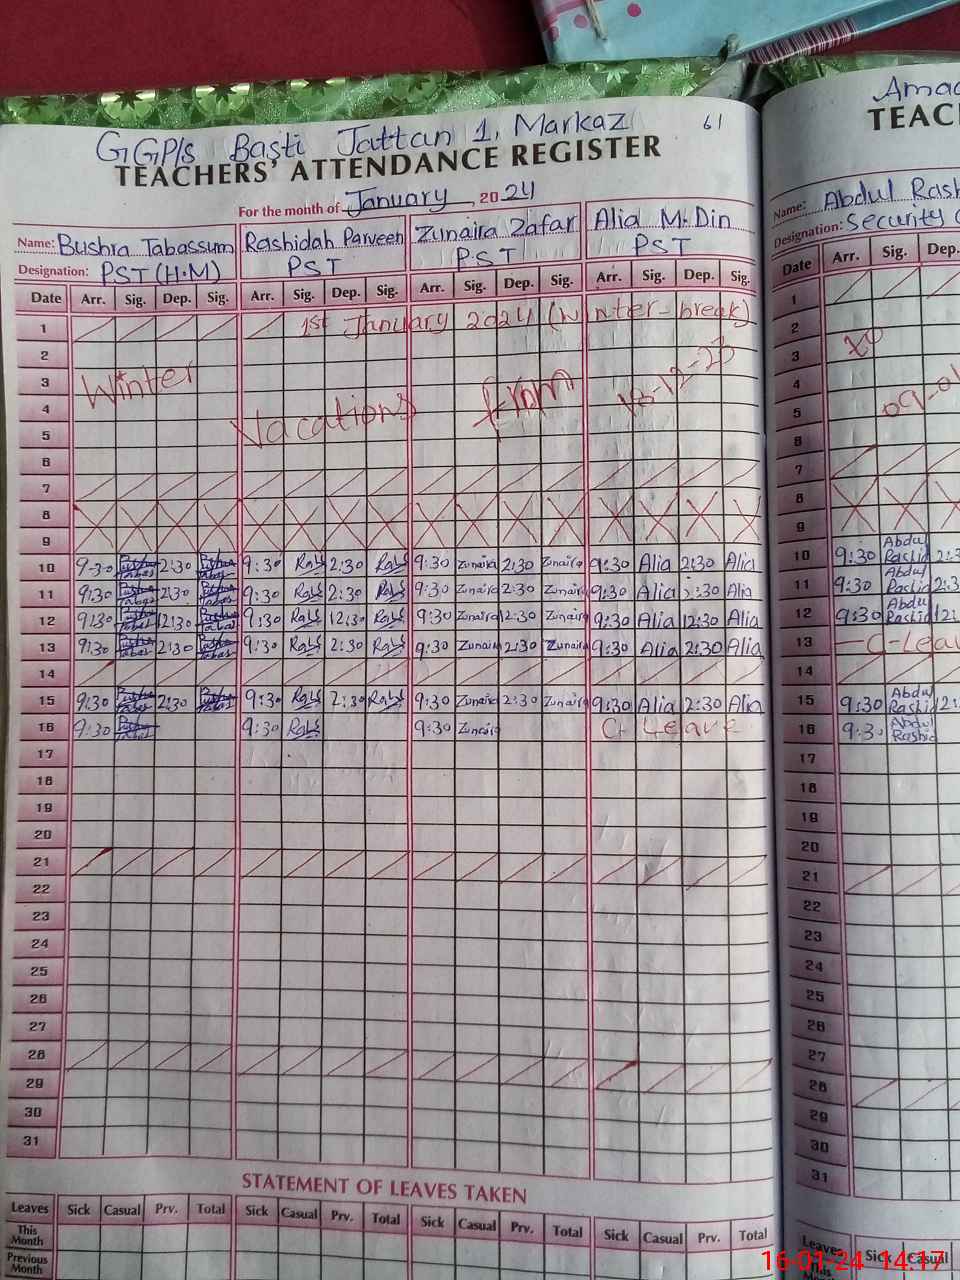 GGP/s Basti Jattan 1, Markaz
61
TEACHERS' ATTENDANCE REGISTER
For the month of January 2024
Name: Bushra Tabassum Rashidah Parveen Zunaira Zafar Alia M. Din
Designation: PST (H.M) PST PST PST
Date Arr. Sig. Dep. Sig. Arr. Sig. Dep. Sig. Arr. Sig. Dep. Sig. Arr. Sig. Dep. Sig.
1 1st January 2024 (Winter-break)
2
3 Winter Vacations from 18-12-23
4
5
6
7
8
9
10 9:30 2:30 9:30 2:30 9:30 Zunaira 2:30 Zunaira 9:30 Alia 2:30 Alia
11 9:30 2:30 9:30 2:30 9:30 Zunaira 2:30 Zunaira 9:30 Alia 2:30 Alia
12 9:30 12:30 9:30 12:30 9:30 Zunaira 12:30 Zunaira 9:30 Alia 12:30 Alia
13 9:30 2:30 9:30 2:30 9:30 Zunaira 2:30 Zunaira 9:30 Alia 2:30 Alia
14
15 9:30 2:30 9:30 2:30 9:30 Zunaira 2:30 Zunaira 9:30 Alia 2:30 Alia
16 9:30 9:30 9:30 Zunaira C Leave
17
18
19
20
21
22
23
24
25
26
27
28
29
30
31
STATEMENT OF LEAVES TAKEN
Leaves Sick Casual Prv. Total Sick Casual Prv. Total Sick Casual Prv. Total Sick Casual Prv. Total
This Month
Previous Month
TEAC
Name: Abdul Rash
Designation: Security
Date Arr. Sig. Dep.
1
2
3
4
5
6
7
8
9
10 9:30 Abdul Rashid 2:3
11 9:30 Abdul Rashid 2:3
12 9:30 Abdul Rashid 12:
13 C-Leav
14
15 9:30 Abdul Rashid 2:
16 9:30 Abdul Rashid
17
18
19
20
21
22
23
24
25
26
27
28
29
30
31
Leaves Sick Casual
This
16-01-24 14:17